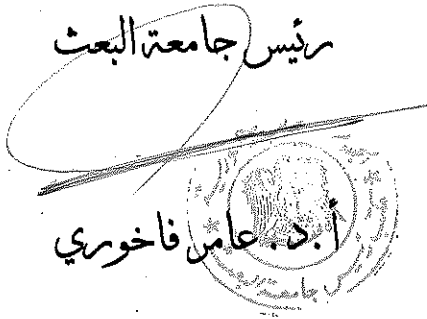 رئيس جامعة البعث
أ.د. عامر فاخوري